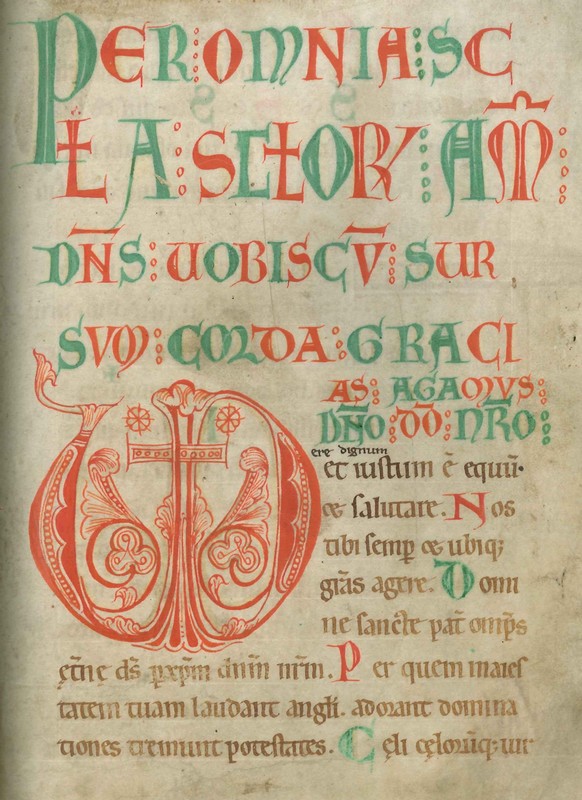 PER:OMNIA:SC
LA:SCLORV:AM̅
DN̅S:UOBISCV̅:SUR
SVM:CORDA:GRACI
AS:AGAMVS:
DN̅O:DO̅:NR̅O:
ere dignum
et iustum ē equū·
& salutare. Nos
tibi semp̱ & ubiq;
gr̄as agere. Domi
ne sanc̄te pat̄ omp̄s
ęt̄nę ds̄ p̱xp̄m dnm̄ nrm̄. Per quem maies
tatem tuam laudant angłi. adorant domina
tiones tremunt potestates. Cęli cęlorūq; uir